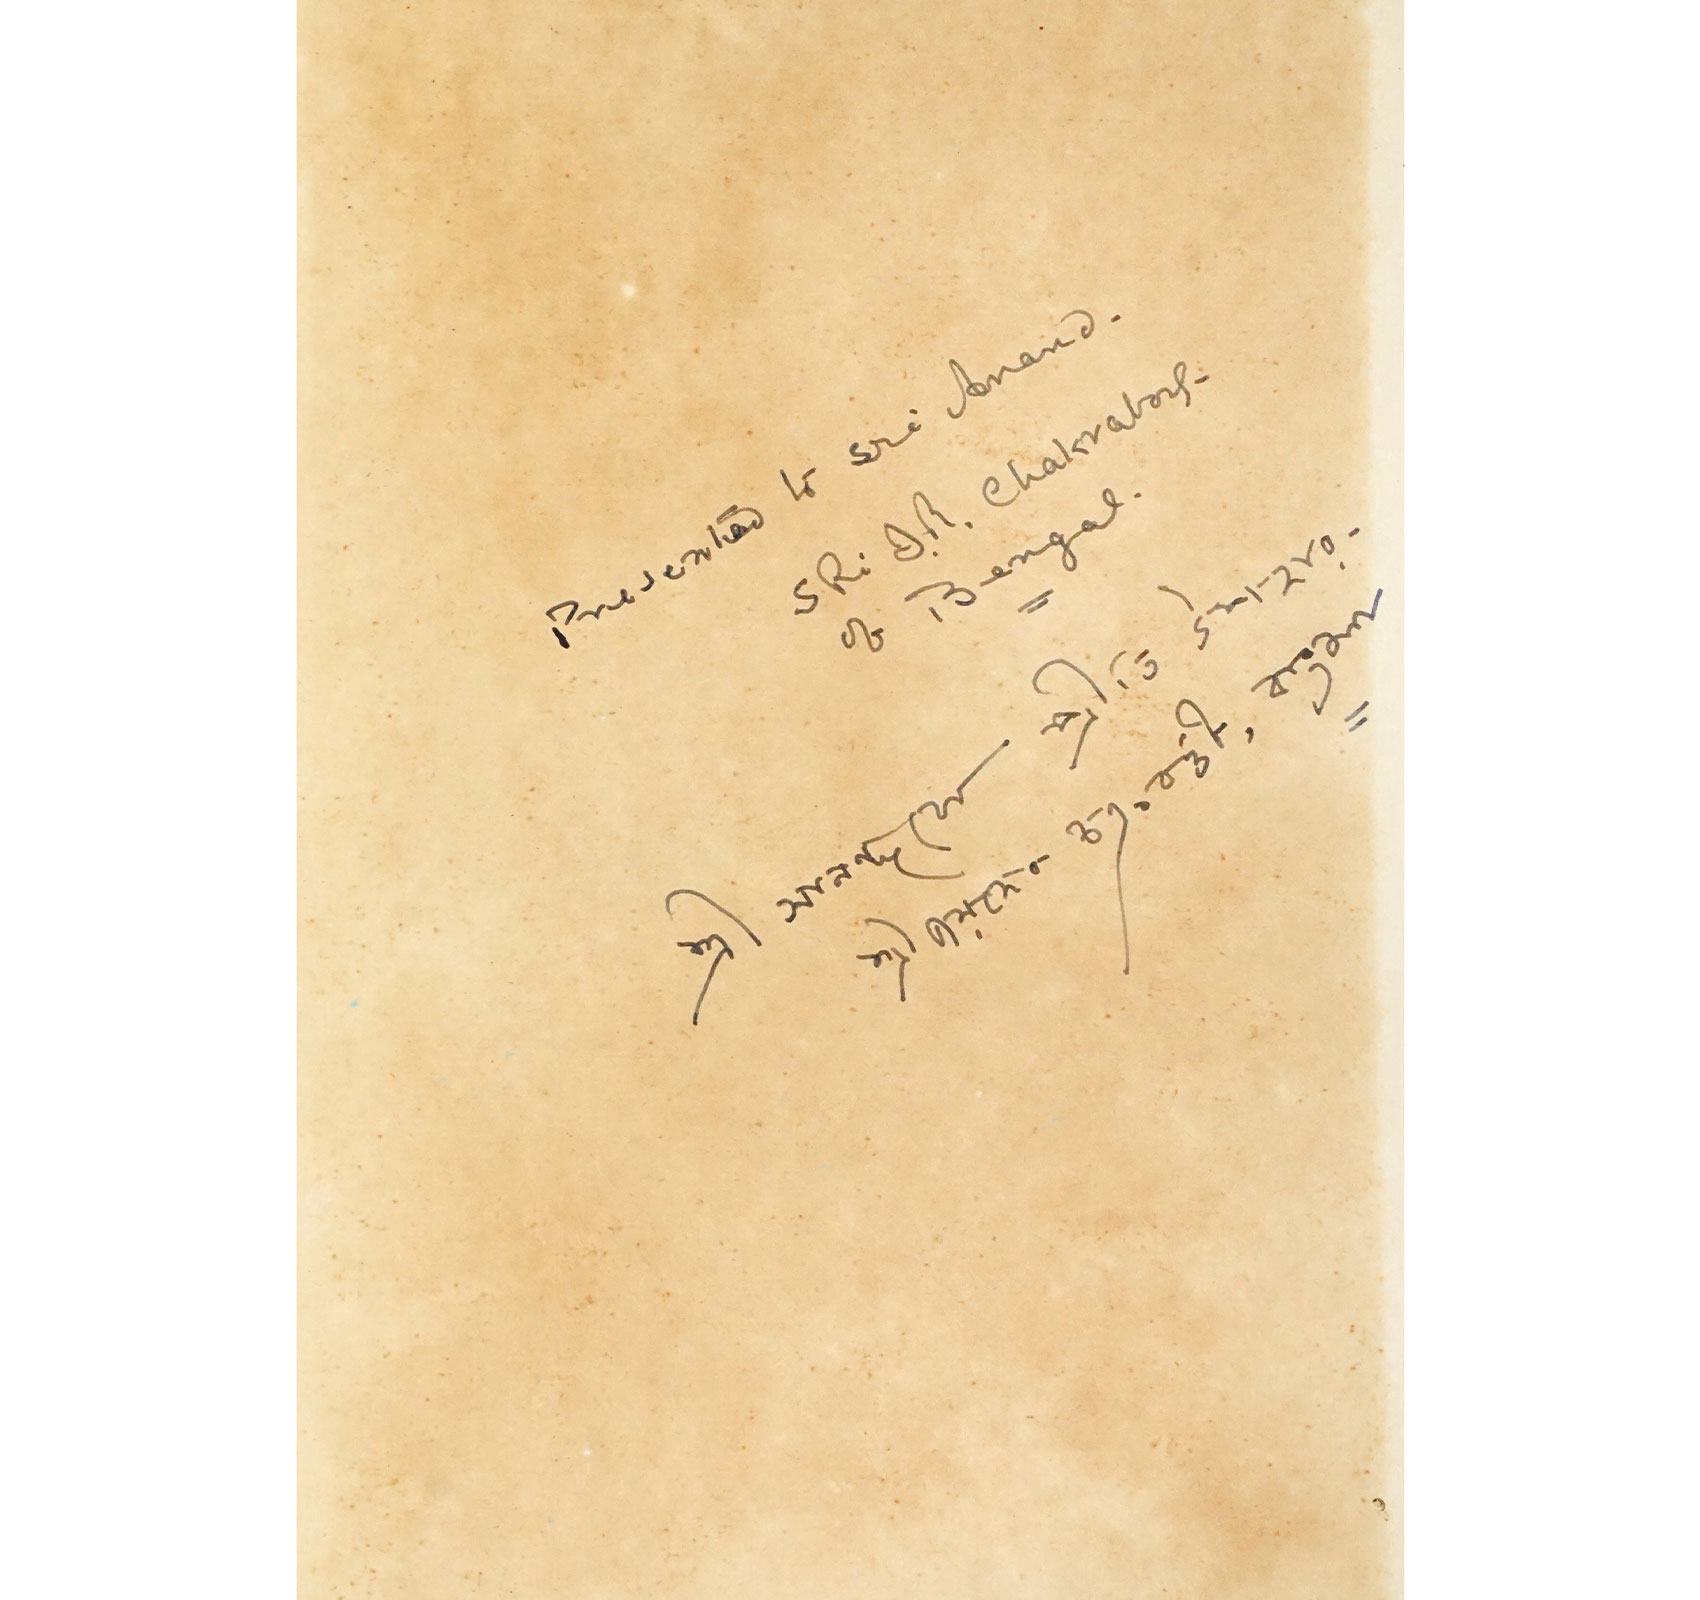 Presented to Sri Anand.
SRi D.R. Chakraborty.
of Bengal.
শ্রী আনন্দকে শ্রীতি উপহার.
শ্রী চক্রবর্ত্তী,